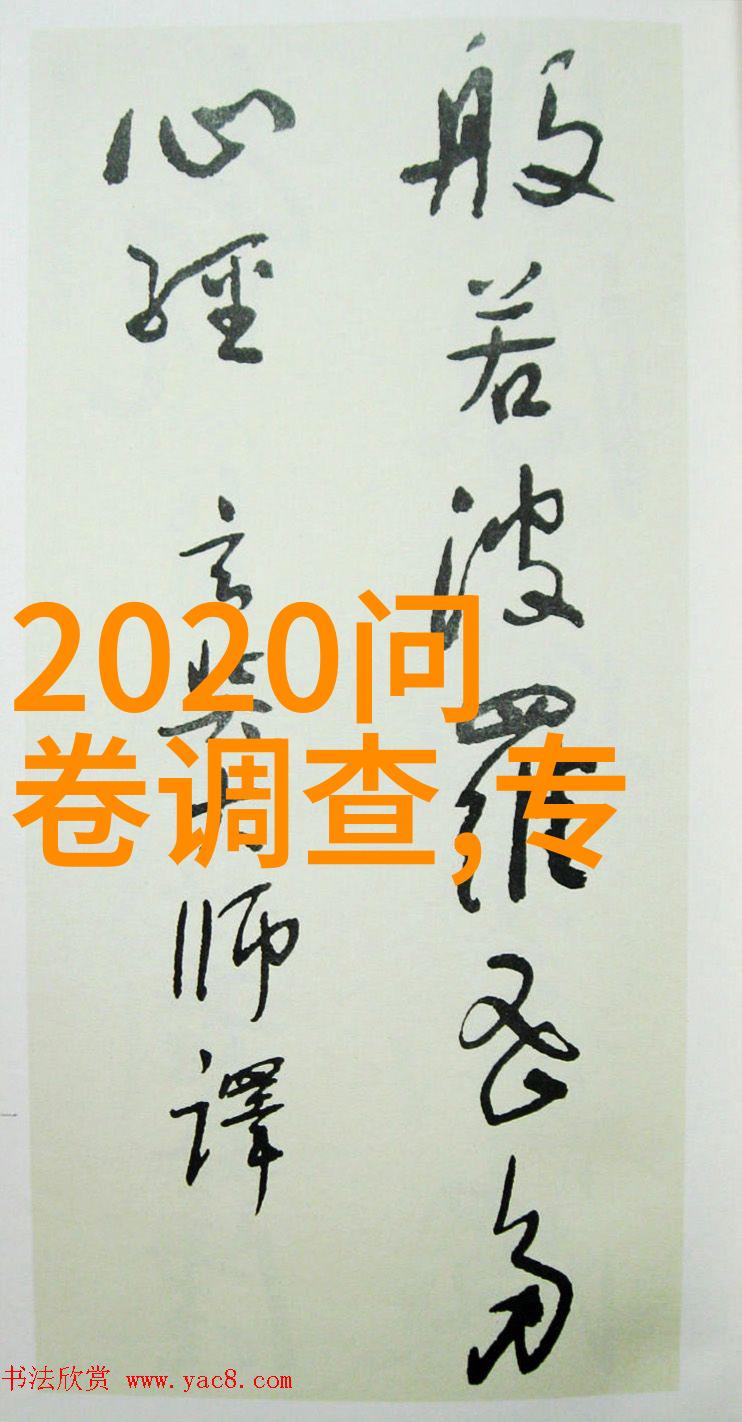 般若波羅蜜多
心經 玄奘師譯
2020问
卷调查,专
书法欣赏 www.yac8.com